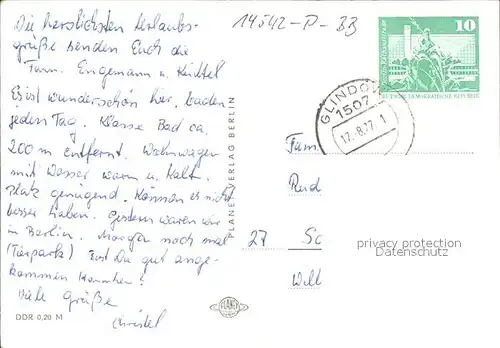 Die herzlichsten Urlaubs-
grüße senden Euch die
Fam. Engemann u. Küttel
Es ist wunderschön hier, baden
jeden Tag. Klasse Bad ca.
200 m entfernt. Wohnwagen
mit Wasser warm u. kalt.
Platz genügend. Können es nicht
besser haben. Gestern waren wir
in Berlin. Morgen noch mal
(Tierpark) Bist Du gut ange-
kommen
Viele Grüße
Christel
DDR 0,20 M
PLANET-VERLAG BERLIN
PLANET
14542-P-33
10
DEUTSCHE DEMOKRATISCHE REPUBLIK
GLINDOW
1507
17.-8.77.-1
Fam.
Rud
27 Sc
Will
privacy protection
Datenschutz